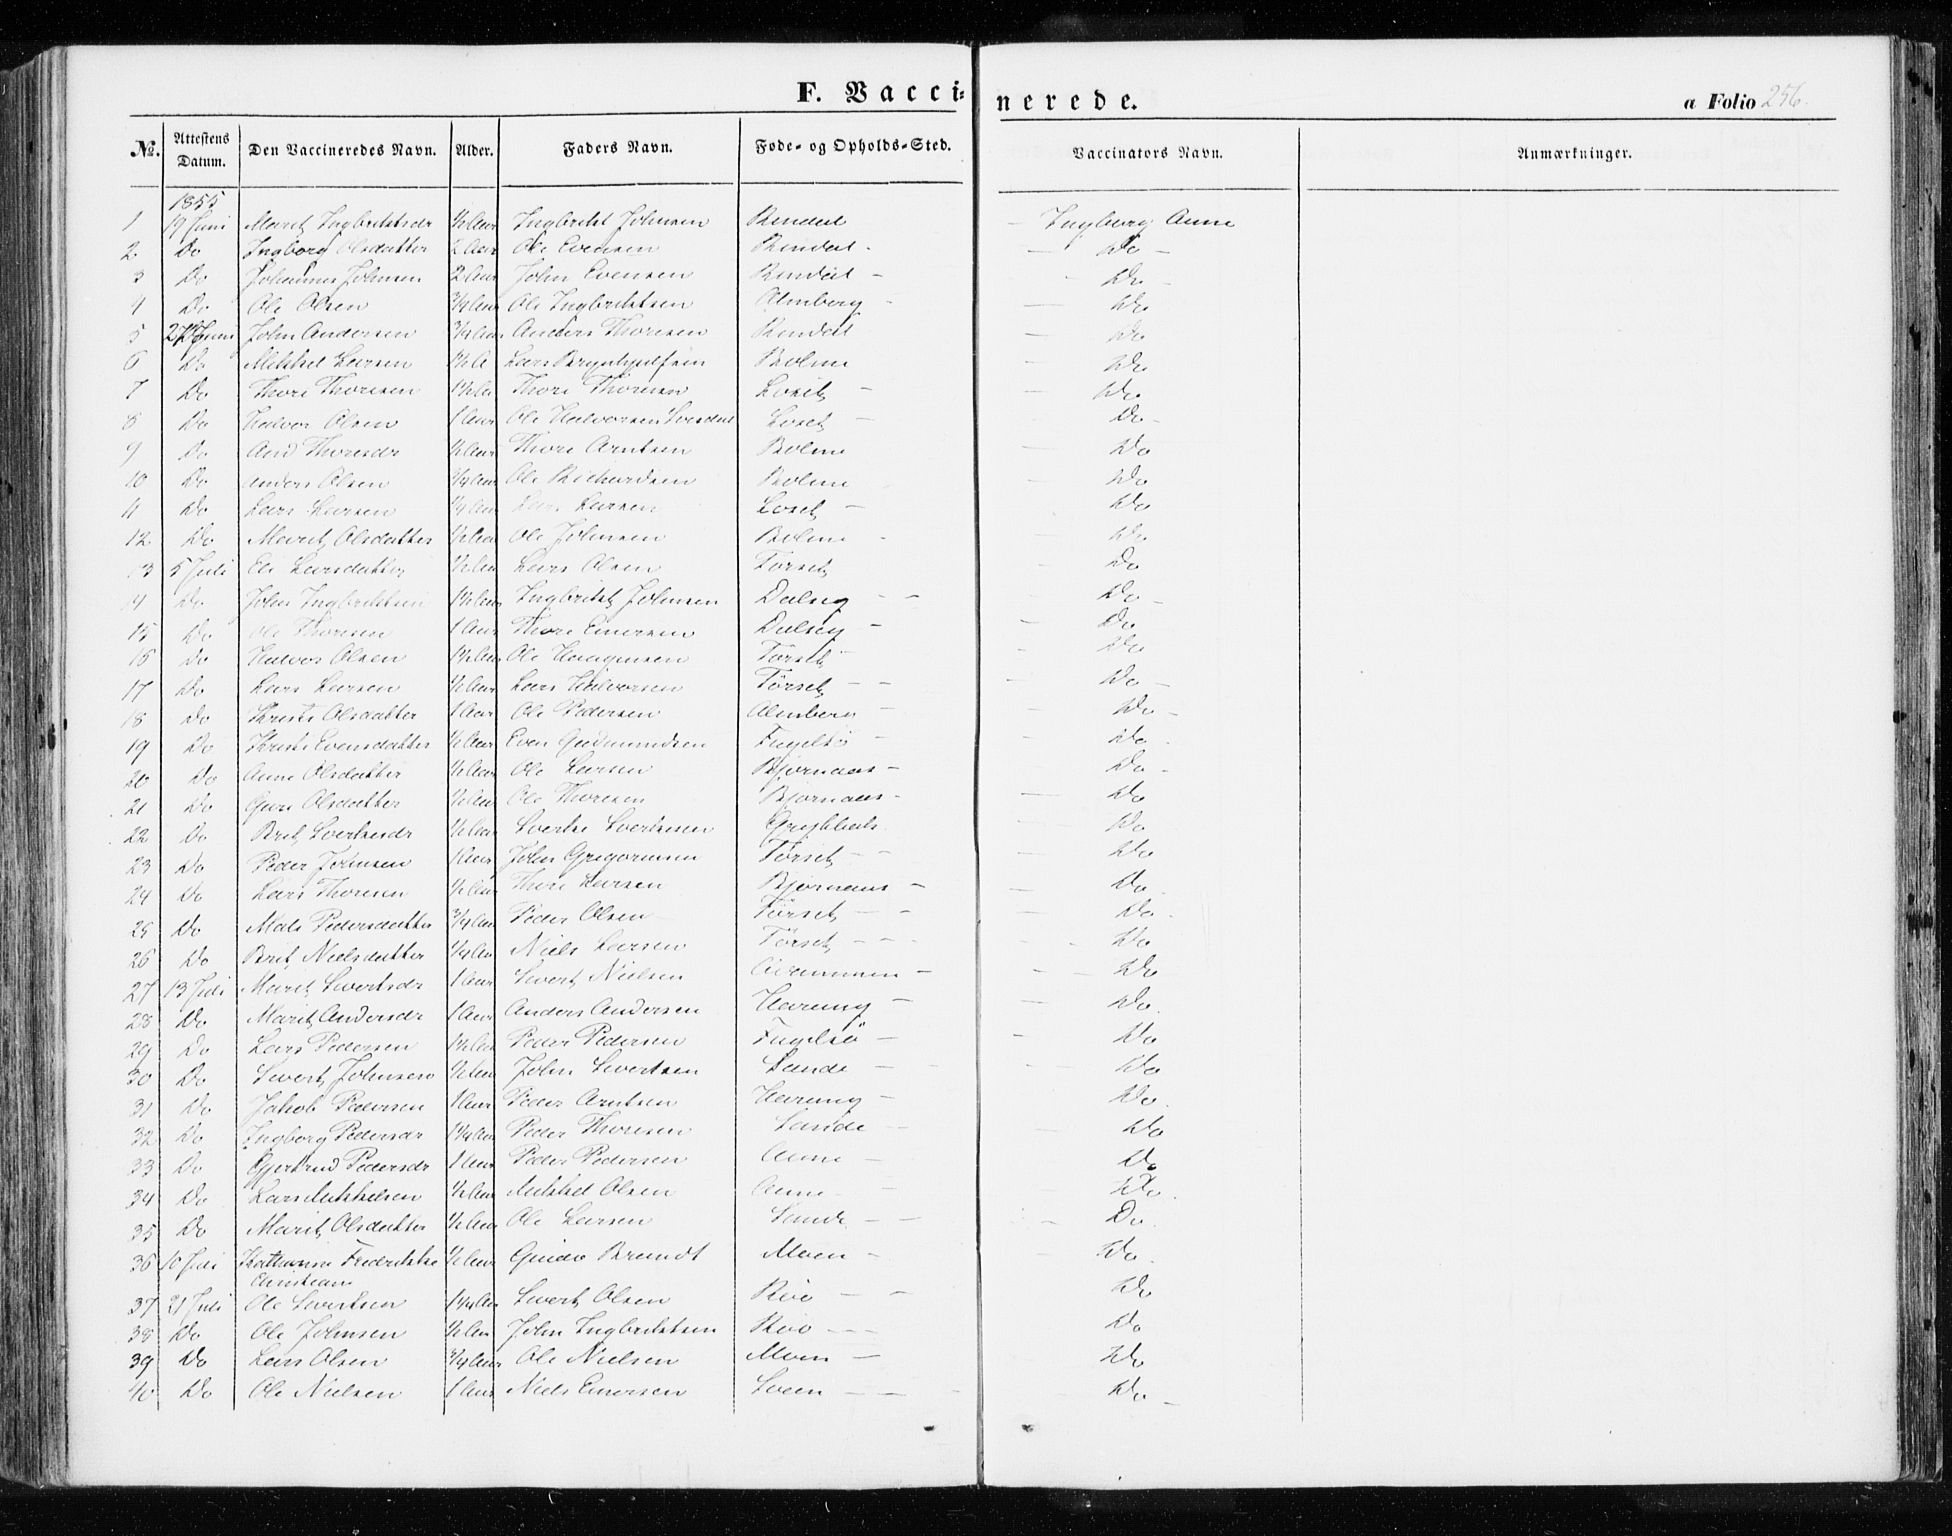 F. Vaccinerede.
a Folio 256.
No. Attestens Datum. Den Vaccineredes Navn. Alder. Faders Navn. Føde- og Opholds-Sted. Vaccinators Navn. Anmærkninger.
1855
1 19 Juni Marit Ingbriktsdr ½ Aar Ingbrikt Johnsen Rindal Ingborg Aune
2 Do Ingborg Olsdatter 2 Aar Ole Evensen Rindal - Do
3 Do Johannes Johnsen 2 Aar John Evensen Rindal - Do
4 Do Ole Olsen ¾ Aar Ole Ingbriktsen Almberg Do
5 27 Juni John Andersen ¾ Aar Anders Thoresen Rindal Do
6 Do Mikkel Larsen 1½ A Lars Brynhyldsen Bolme Do
7 Do Thore Thoresen 1½ Aa Thore Thoresen Loset - Do
8 Do Halvor Olsen 1 Aar Ole Halvorsen Loset - Do
9 Do Thoresdr ½ Aar Thore Arntsen Bolme Do
10 Do Anders Olsen ¼ Aar Ole Richardsen Bolme Do
11 Do Lars Larsen ¼ Aar Lars Larsen Loset - Do
12 Do Marit Olsdatter ½ Aar Ole Johnsen Bolme Do
13 5 Juli Eli Larsdatter ½ Aar Lars Olsen Torset Do
14 Do John Ingbriktsen 1½ Aar Ingbrikt Johnsen Dalseg - - Do
15 Do Ole Thoresen 1 Aar Thore Einersen Dalseg - Do
16 Do Halvor Olsen 1½ Aar Ole Haagensen Torset Do
17 Do Lars Larsen ½ Aar Lars Halvorsen Tørset - - Do
18 Do Kristi Olsdatter 1 Aar Ole Pedersen Almberg Do
19 Do Kristi Evensdatter ½ Aar Even Gudmundsen Fugelsø Do
20 Do Anne Olsdatter ½ Aar Ole Larsen Bjørnaas - Do
21 Do Guri Olsdatter ½ Aar Ole Thoresen Bjørnaas - Do
22 Do Brit Sivertsdr ½ Aar Do
23 Do Peder Johnsen 1 Aar John Gregoriusen Tørset - Do
24 Do Lars Thoresen ½ Aar Thore Larsen Bjørnaas - Do
25 Do Mali Pedersdatter ¾ Aar Peder Olsen Tørset - - Do
26 Do Brit Nielsdatter ¼ Aar Niels Larsen Tørset - - - Do
27 13 Juli Marit Sivertsdr 1 Aar Sivert Nielsen Do
28 Do Marit Andersdr 1 Aar Anders Andersen Harang - Do
29 Do Lars Pedersen 1½ Aar Peder Pedersen Fugelsø - Do
30 Do Sivert Johnsen ½ Aar John Sivertsen Lande - Do
31 Do Jakob Pedersen 1 Aar Peder Arntsen Harang - Do
32 Do Ingborg Pedersdr 1¼ Aar Peder Thoresen Lande - Do
33 Do Gjertrud Pedersdr 1 Aar Peder Pedersen Aune - Do
34 Do Lars Mikkelsen ½ Aar Mikkel Olsen Aune - Do
35 Do Marit Olsdatter ½ Aar Ole Larsen Lande - - Do
36 10 Juli Kathinna Fredrikke ½ Aar Guido Brandt Moen - Do
Christiane
37 21 Juli Ole Sivertsen 1¼ Aar Sivert Olsen Roo - - Do
38 Do Ole Johnsen ½ Aar John Ingbriktsen Roo - - - Do
39 Do Lars Olsen ¾ Aar Ole Nielsen Moen - Do
40 Do Ole Nielsen 1 Aar Niels Einersen - - Do